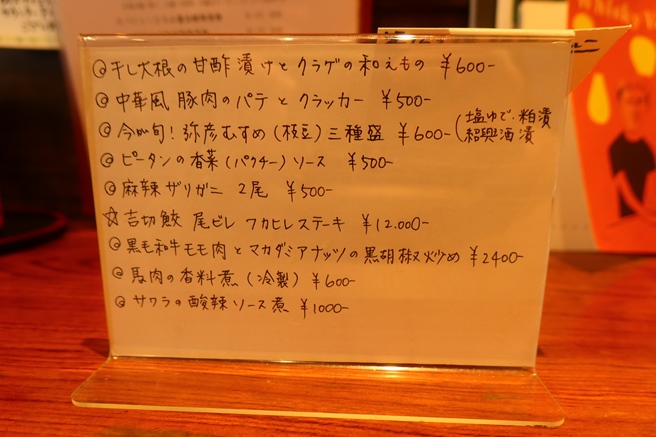 ◎干し大根の甘酢漬けとクラゲの和えもの ¥600-
◎中華風 豚肉のパテとクラッカー ¥500-
◎今が旬!弥彦むすめ(枝豆)三種盛 ¥600-(塩ゆで・粕漬
紹興酒漬
◎ピータンの香菜(パクチー)ソース ¥500-
◎麻辣ザリガニ 2尾 ¥500-
☆吉切鮫 尾ビレ フカヒレステーキ ¥12.000-
◎黒毛和牛モモ肉とマカダミアナッツの黒胡椒炒め ¥2400-
◎馬肉の香料煮(冷製) ¥600-
◎サワラの酸辣ソース煮 ¥1000-